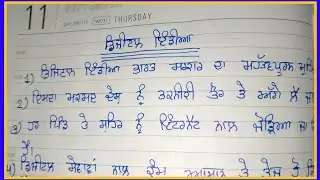 11
THURSDAY
ਡਿਜੀਟਲ ਇੰਡੀਆ
1) ਡਿਜਿਟਲ ਇੰਡੀਆ ਭਾਰਤ ਸਰਕਾਰ ਦਾ ਮਹੱਤਵਪੂਰਨ
2) ਇਸਦਾ ਮਕਸਦ ਦੇਸ਼ ਨੂੰ ਤਕਨੀਕੀ ਤੌਰ ਤੇ ਅੱਗੇ ਲੈ ਜਾ
3) ਹਰ ਪਿੰਡ ਤੇ ਸ਼ਹਿਰ ਨੂੰ ਇੰਟਰਨੈਟ ਨਾਲ ਜੋੜਿਆ ਜਾ
ਹੈ।
4) ਡਿਜੀਟਲ ਸੇਵਾਵਾਂ ਨਾਲ ਕੰਮ ਆਸਾਨ ਤੇ ਤੇਜ਼ ਹੋ